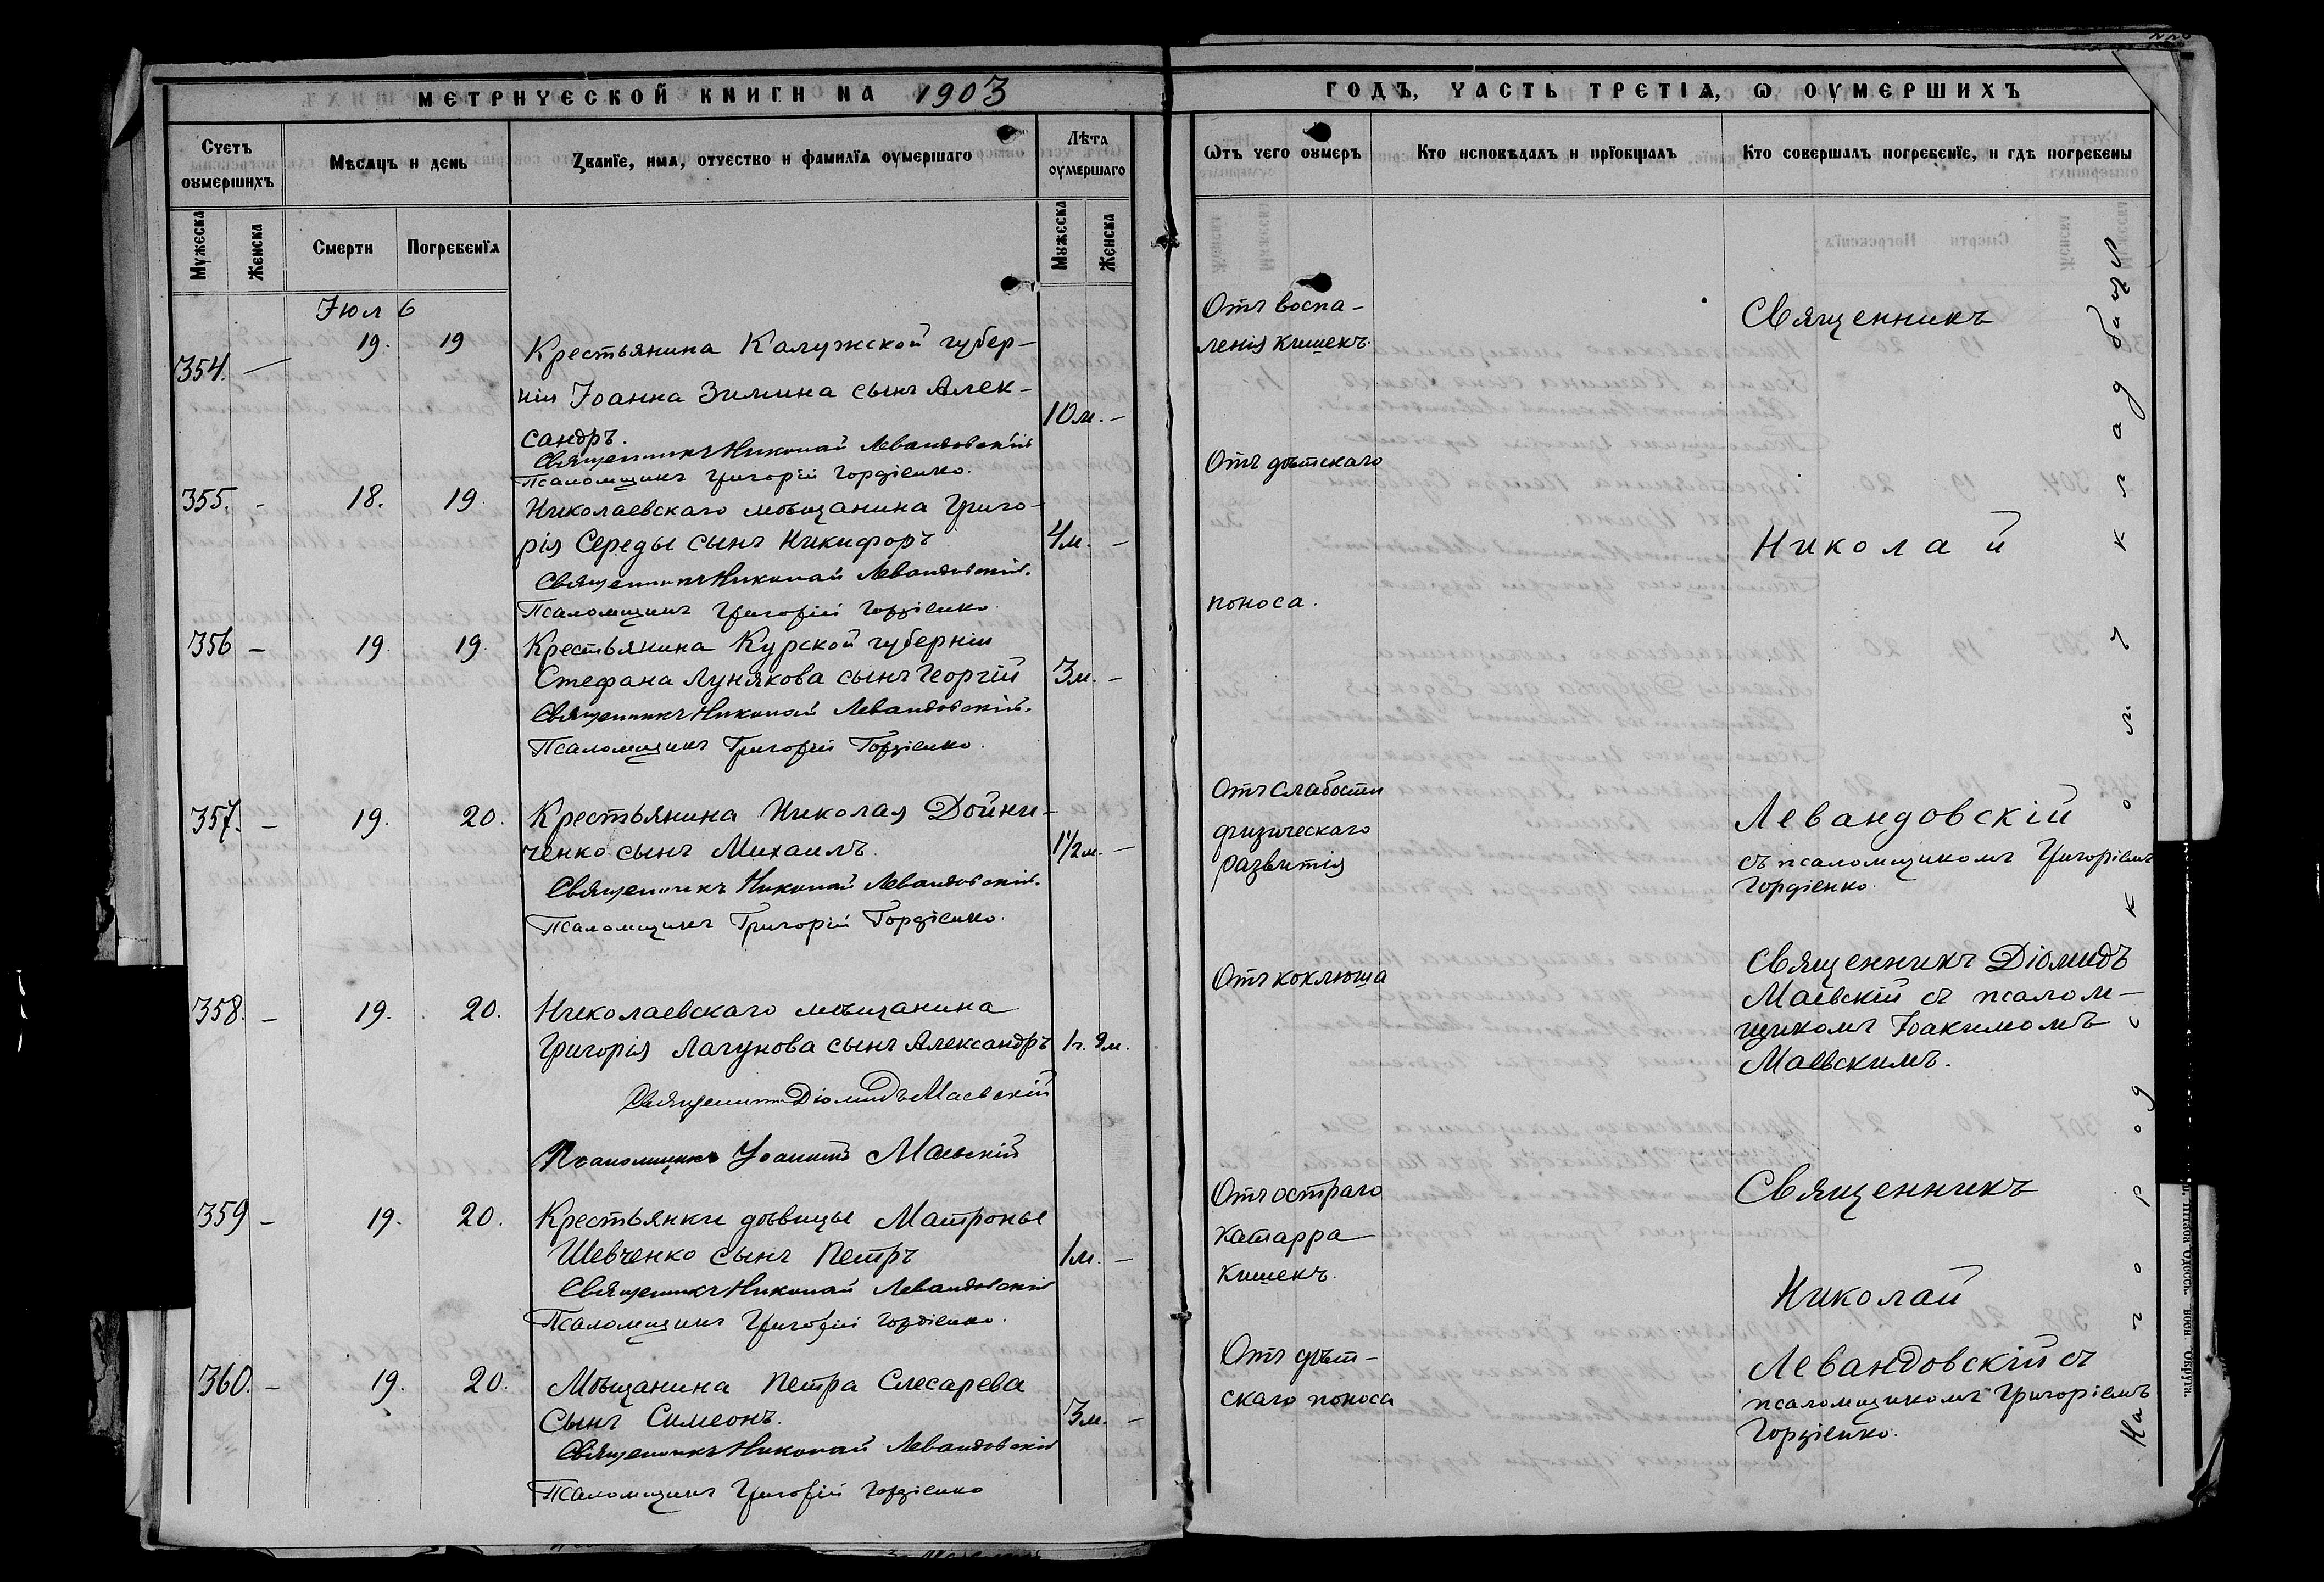 МЕТРИЧЕСКОЙ КНИГИ НА 1903
ГОДЪ, ЧАСТЬ ТРЕТІѦ, Ѡ ОУМЕРШИХЪ
Счетъ оумершихъ
Мѣсяцъ и день
Званїе, имѧ, отчество и фамилїѧ оумершаго
Лѣта оумершаго
Ѿтъ чего оумеръ
Кто исповѣдалъ и прїобщалъ
Кто совершалъ погребенїе, и гдѣ погребены
Мужеска
Женска
Смерти
Погребенїѧ
Мужеска
Женска
Іюл 6
354. — 19. 19
Крестьянина Калужской губер-
ніи Іоанна Зимина сынъ Алек-
сандръ.
10 м. —
Священникъ Николай Левандовскій
Псаломщикъ Григорій Гордіенко.
355. - 18. 19.
Николаевскаго мѣщанина Григо-
рія Середы сынъ Никифоръ
4 м. —
Священникъ Николай Левандовскій.
Псаломщикъ Григорій Гордіенко
356 — 19. 19.
Крестьянина Курской губерніи
Стефана Лунякова сынъ Георгій
3 м. —
Священникъ Николай Левандовскій.
Псаломщикъ Григорій Гордіенко.
357. — 19. 20.
Крестьянина Николая Дойни-
ченко сынъ Михаилъ.
1½ м. —
Священникъ Николай Левандовскій.
Псаломщикъ Григорій Гордіенко.
358. — 19. 20.
Николаевскаго мѣщанина
Григорія Лагунова сынъ Александръ
1 г. 9 м.
Священникъ Діомидъ Маевскій
Псаломщикъ Іоакимъ Маевскій
359 — 19. 20.
Крестьянки дѣвицы Матроны
Шевченко сынъ Петръ
1 м. —
Священникъ Николай Левандовскій
Псаломщикъ Григорій Гордіенко.
360. — 19. 20.
Мѣщанина Петра Слесарева
сынъ Симеонъ.
3 м. —
Священникъ Николай Левандовскій
Псаломщикъ Григорій Гордіенко
Отъ воспа-
ленія кишекъ.
Отъ дѣтскаго
поноса.
Отъ слабости
физическаго
развитія
Отъ коклюша
Отъ остраго
катарра
кишекъ.
Отъ дѣт-
скаго поноса
Священникъ
Николай
Левандовскій
съ псаломщикомъ Григоріемъ
Гордіенко.
Священникъ Діомидъ
Маевскій съ псалом-
щикомъ Іоакимомъ
Маевскимъ.
Священникъ
Николай
Левандовскій съ
псаломщикомъ Григоріемъ
Гордіенко.
На городском кладбищѣ